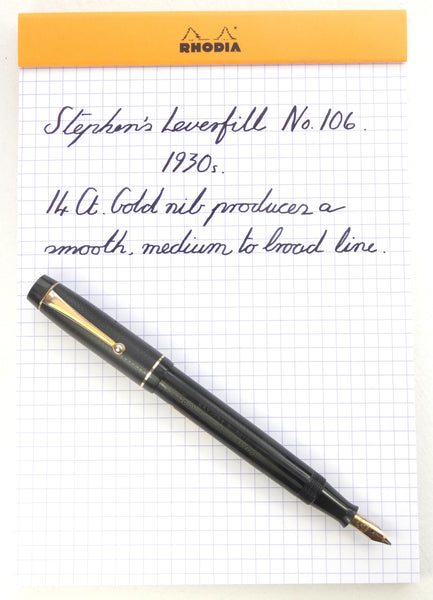 RHODIA
Stephen's Leverfill No. 106.
1930s.
14 Ct. Gold nib produces a
smooth, medium to broad line.